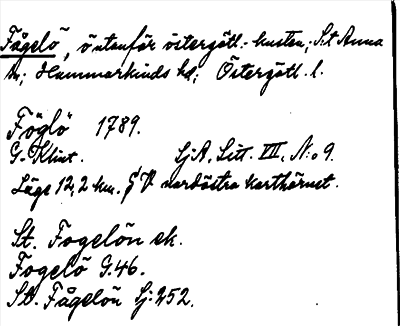 Fågelö, ö utanför östergötl. kusten; S:t Anna
sn; Hammarkinds hd; Östergötl. l.
Föglö 1789.
G. Klint. SjA. Litt. VII, N:o 9.
Läge 12,2 km. SV nordöstra karthörnet.
St. Fogelön ek.
Fogelö G.46.
St. Fågelön Sj:252.